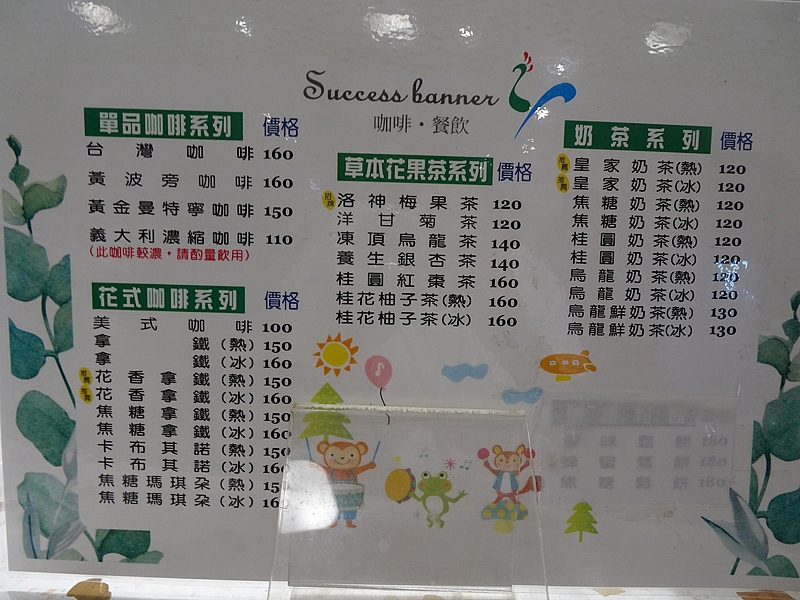 Success banner
咖啡・餐飲
單品咖啡系列 價格
台灣咖啡 160
黃波旁咖啡 160
黃金曼特寧咖啡 150
義大利濃縮咖啡 110
(此咖啡較濃,請酌量飲用)
花式咖啡系列 價格
美式咖啡 100
拿鐵(熱) 150
拿鐵(冰) 160
推薦 花香拿鐵(熱) 150
推薦 花香拿鐵(冰) 160
焦糖拿鐵(熱) 150
焦糖拿鐵(冰) 160
卡布其諾(熱) 150
卡布其諾(冰) 160
焦糖瑪琪朵(熱) 15
焦糖瑪琪朵(冰) 16
草本花果茶系列 價格
招牌 洛神梅果茶 120
洋甘菊茶 120
凍頂烏龍茶 140
養生銀杏茶 140
桂圓紅棗茶 160
桂花柚子茶(熱) 160
桂花柚子茶(冰) 160
奶茶系列 價格
推薦 皇家奶茶(熱) 120
推薦 皇家奶茶(冰) 120
焦糖奶茶(熱) 120
焦糖奶茶(冰) 120
桂圓奶茶(熱) 120
桂圓奶茶(冰) 120
烏龍奶茶(熱) 120
烏龍奶茶(冰) 120
烏龍鮮奶茶(熱) 130
烏龍鮮奶茶(冰) 130
180
180
180